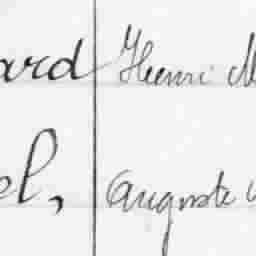 ard Henri M
el, Auguste